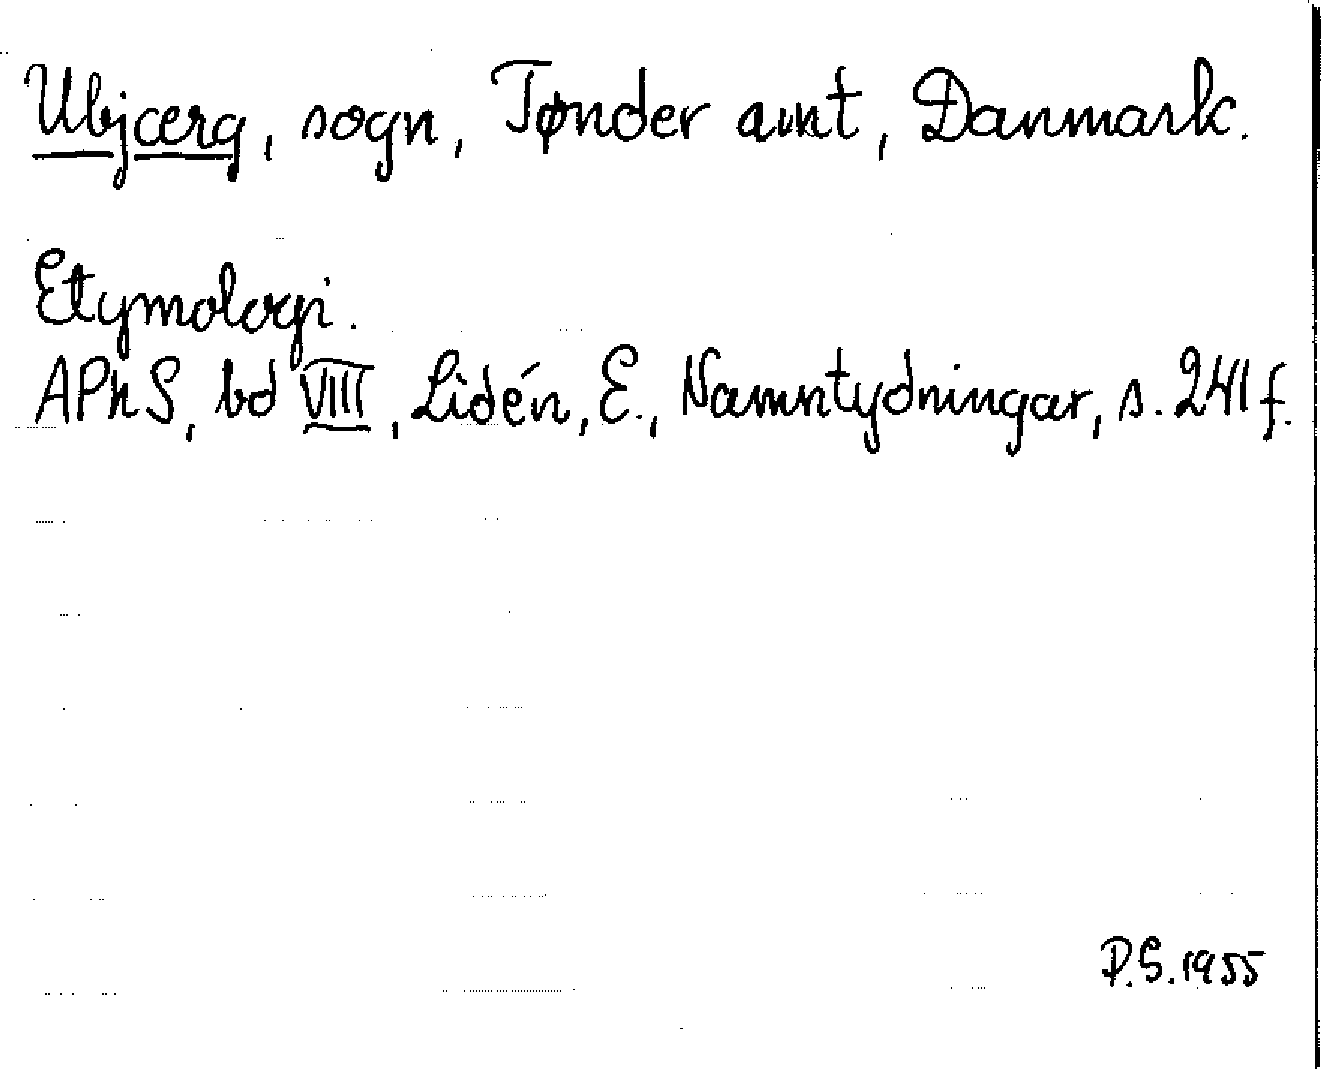 Ubjærg, sogn, Tønder amt, Danmark.
Etymologi.
APhS, bd VIII, Lidén, E., Namntydningar, s. 241 f.
P.S. 1955